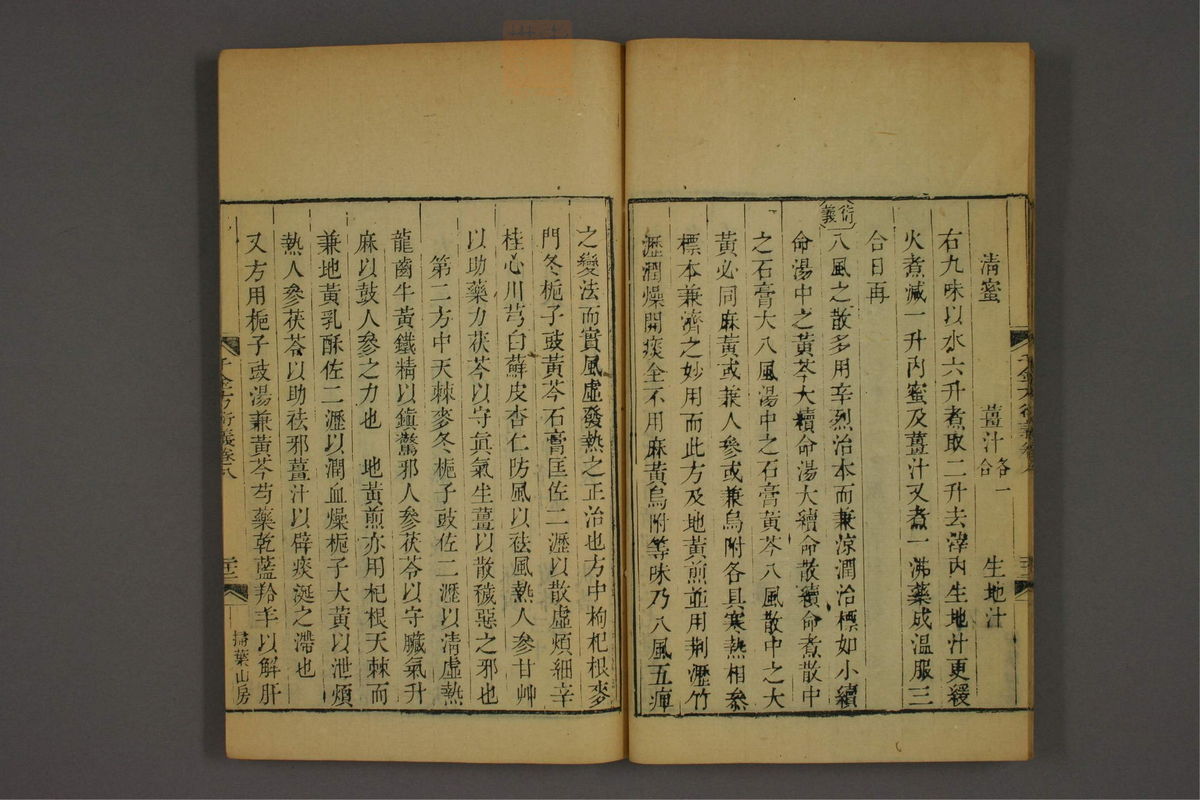 清蜜 薑汁各一合 生地汁
右九味以水六升煮取二升去滓內生地汁更緩
火煮減一升內蜜及薑汁又煮一沸藥成溫服三
合日再
衍義 八風之散多用辛烈治本而兼涼潤治標如小續
命湯中之黃芩大續命湯大續命散續命煮散中
之石膏大八風湯中之石膏黃芩八風散中之大
黃必同麻黃或兼人參或兼烏附各具寒熱相參
標本兼濟之妙用而此方及地黃煎並用荆瀝竹
瀝潤燥開痰全不用麻黃烏附等味乃八風五痺
之變法而實風虛發熱之正治也方中枸杞根麥
門冬梔子豉黃芩石膏匡佐二瀝以散虛煩細辛
桂心川芎白蘚皮杏仁防風以祛風熱人參甘艸
以助藥力茯苓以守眞氣生薑以散穢惡之邪也
第二方中天棘麥冬梔子豉佐二瀝以清虛熱
龍齒牛黃鐵精以鎭驚邪人參茯苓以守臟氣升
麻以鼓人參之力也 地黃煎亦用杞根天棘而
兼地黃乳酥佐二瀝以潤血燥梔子大黃以泄煩
熱人參茯苓以助祛邪薑汁以辟痰涎之滯也
又方用梔子豉湯兼黃芩芍藥乾藍羚羊以解肝
千金方衍義卷八
掃葉山房